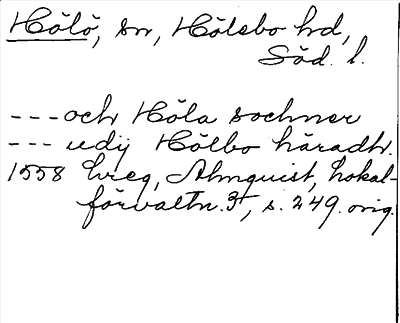 Hölö, sn, Hölebo hd,
Söd. l.
--- och Höla sochner
--- udij Hölbo häradh.
1558 Lreg, Almquist, Lokal-
förvaltn. 3, s. 249. orig.